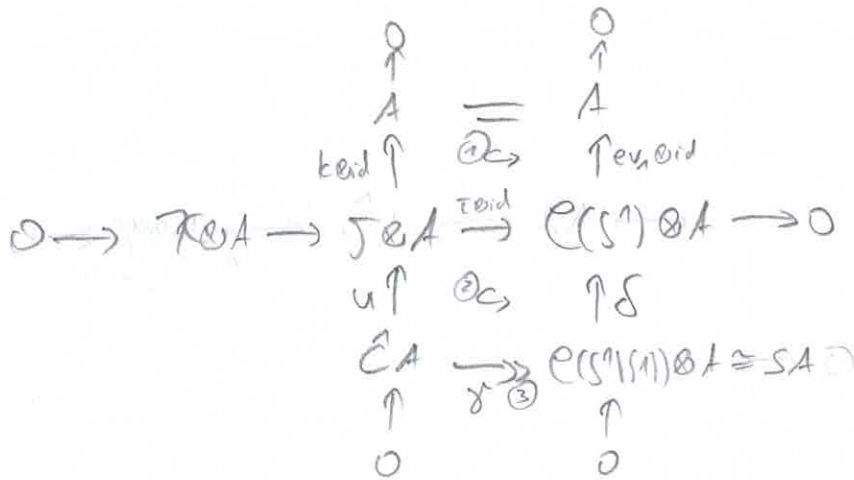 0 0
↑ ↑
A = A
k⊗id ↑ ① ↑ ev₁⊗id
0 → K⊗A → T⊗A →^{τ⊗id} C(S¹)⊗A → 0
u ↑ ② ↑ δ
ĈA ↠ C(S¹\{1})⊗A ≅ SA
↑ γ ③ ↑
0 0